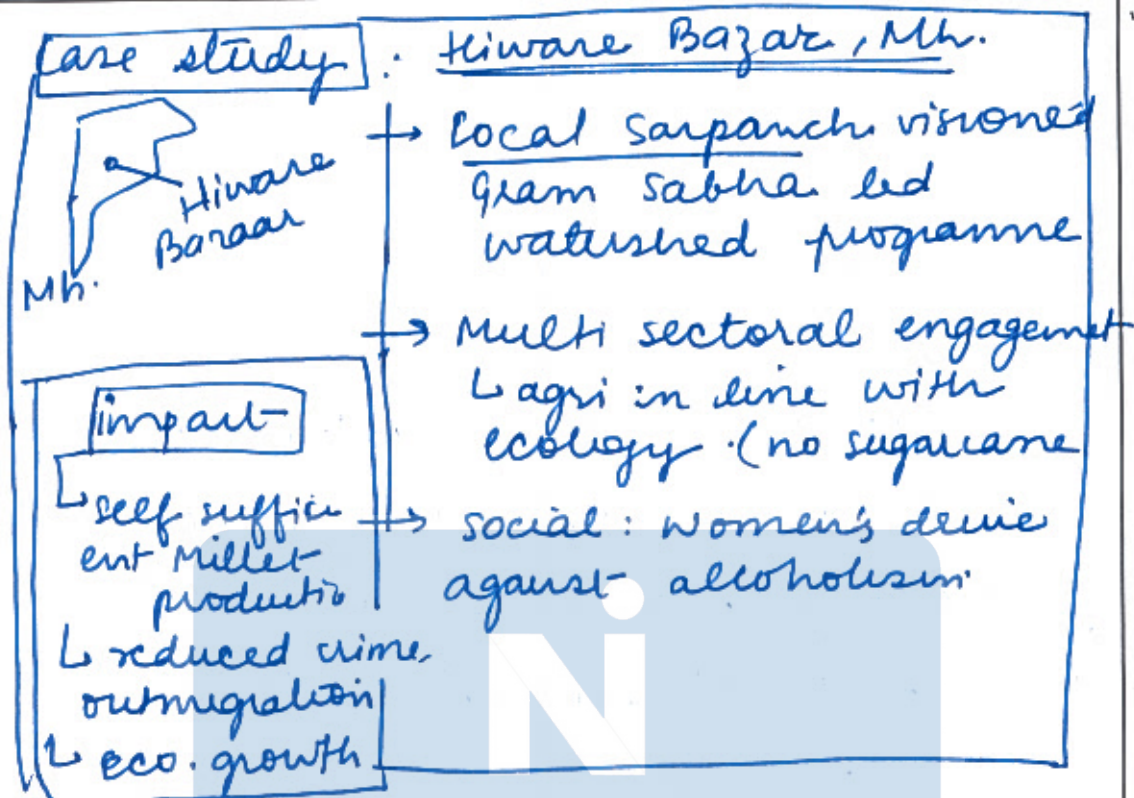 Case study : Hiware Bazar, Mh.
Hiware
Bazaar
Mh.
→ Local Sarpanch visioned
Gram Sabha led
watershed programme
→ Multi sectoral engagemet
↳ agri in line with
ecology. (no sugarcane
→ social : women's drive
against alcoholism
impact
↳ self suffici
ent Millet
productio
↳ reduced crime,
outmigration
↳ eco. growth
Ni